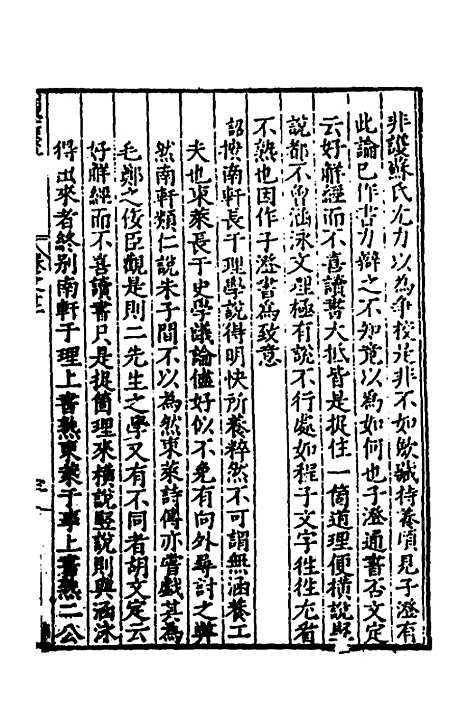 非護蘇氏尤力以為爭校是非不如歛蔵待養頃見子澄有
此論已作書力辯之不知竟以為如何也子澄通書否文定
云好觧經而不喜讀書大抵皆是捉住一箇道理便橫說竪
說都不曾涵泳文理極有說不行處如程子文字徃徃尢者
不熟也因作子澄書為致意
詔按南軒長于理學說得明快所養粹然不可謂無涵養工
夫也東萊長于史學議論儘好似不免有向外尋討之弊
然南軒類仁說朱子間不以為然東萊詩傳亦嘗戲其為
毛鄭之佞臣觀是則二先生之學又有不同者胡文定云
好觧經而不喜讀書只是捉箇理來橫說竪說則與涵泳
得出來者終别南軒于理上書熟東萊于事上書熟二公